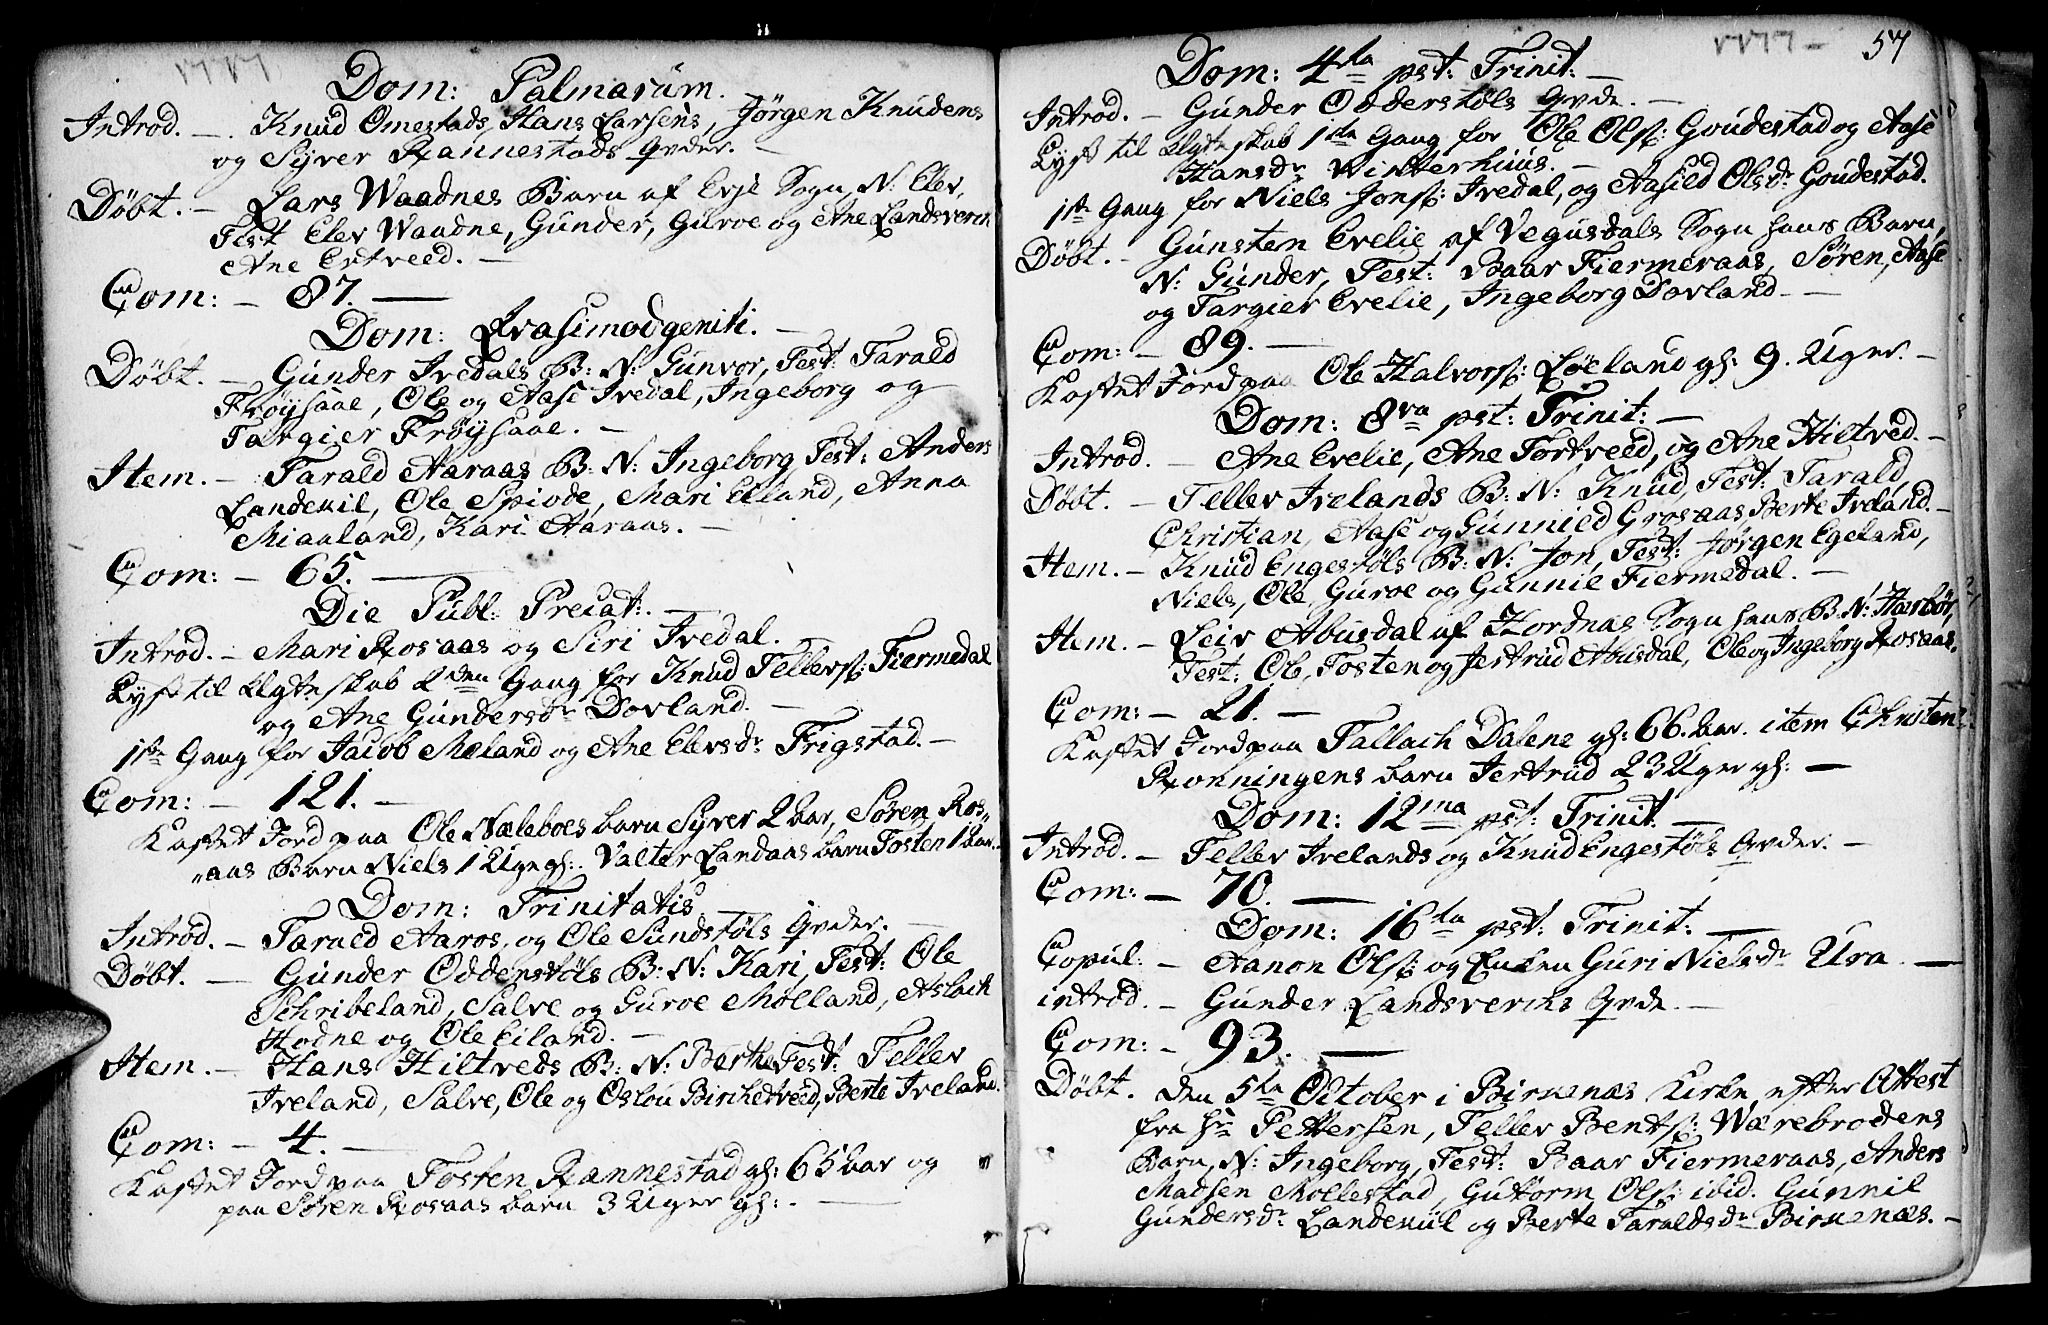 Dom: Palmarum.
Introd. — Knud Omestads, Hans Larsens, Jørgen Knudens
og Syver Rannestads Qvder. —
Døbt. — Lars Waadnes Barn af Evje Sogn, N: Elev,
Test Elev Waadne, Gunder, Guroe og Ane Landsverck
Ane Ertveed. —
Com: — 87. —
Dom: Qvasimodgeniti. —
Døbt. — Gunder Ivedals B: N: Gunvor, Test: Tarald
Frøysaae, Ole og Aase Ivedal, Ingeborg og
Targier Frøysaae. —
Item. — Tarald Aaraas B: N: Ingeborg Test: Anders
Landevil, Ole Spiode, Mari Eiland, Anna
Miaaland, Kari Aaraas. —
Com: — 65. —
Die Publ: Precat: —
Introd. — Mari Rosaas og Siri Ivedal. —
Lyst til Ægteskab 2den Gang for Knud Tellefs: Fiermedal
og Ane Gundersdr Dovland. —
1ste Gang for Jacob Mæland og Ane Elevsdr Frigstad. —
Com: — 121. —
Kastet Jord paa Ole Næleboes barn Syver 2 Aar, Søren Ros„
„aas Barn Niels 1 Uge gl: Valter Landaas barn Tosten 1 Aar.
Dom: Trinitatis
Introd. — Tarald Aaros, og Ole Sundstøls Qvder. —
Døbt. — Gunder Oddenstøls B: N: Kari, Test: Ole
Schribeland, Salve og Guroe Molland, Aslach
Hodne og Ole Eiland. —
Item. — Hans Hiltveds B: N: Berthe Test: Tellev
Ireland, Salve, Ole og Oslou Birchetveed, Berte Ireland.
Com: — 4. —
Kastet Jord paa Tosten Rannestad gl: 65 Aar og
paa Søren Rosaas barn 3 Uger gl: —
57
Dom: 4ta pst: Trinit: —
Introd. — Gunder Odderstøls Qvde. —
Lyst til Ægteskab 1ste Gang for Ole Ols: Goudestad og Aase
Hansdr Winterhuus. —
1ste Gang for Niels Jons: Ivedal, og Aasild Olsdr Goudestad.
Døbt. — Gunsten Evelie af Vegusdals Sogn hans Barn,
N: Gunder, Test: Baar Fiermeraas, Søren, Aase
og Targier Evelie, Ingeborg Dovland. —
Com: — 89. —
Kastet Jord paa Ole Halvors: Løeland gl: 9. Uger. —
Dom: 8va pst: Trinit: —
Introd. — Ane Evelie, Ane Tortveed, og Ane Hiltved. —
Døbt. — Tellev Irelands B: N: Knud, Test: Tarald,
Christian, Aase og Gunnied Grosaas Berte Ireland. —
Item. — Knud Engestøls B: N: Jon, Test: Jørgen Egeland,
Niels, Ole, Guroe og Gunnil Fiermedal. —
Item. — Leiv Abusdal af Hordnæs Sogn hans B: N:
Test: Ole, Tosten og Jertrud Abusdal, Ole og Ingeborg Rosaas.
Com: — 21. —
Kastet Jord paa Tallach Dalene gl: 66. Aar. item Christen
Rønningens barn Jertrud 23 Uger gl: —
Dom: 12ma pst: Trinit —
Introd. — Tellev Irelands og Knud Engestøls Qvder. —
Com: — 70. —
Dom: 16ta pst: Trinit: —
Copul: — Aanon Ols: og Enken Guri Nielsdr Ura. —
introd. — Gunder Landsvercks Qvde. —
Com: — 93. —
Døbt. den 5te October i Birkenæs Kirke, efter Attest
fra Hr Pettersen, Tellev Bents: Wærebrodens
Barn, N: Ingeborg, Test: Baar Fiermeraas, Anders
Madsen Mollestad, Guttorm Ols: ibid. Gunnil
Gundersdr Landevil og Berte Taraldsdr Birkenæs. —